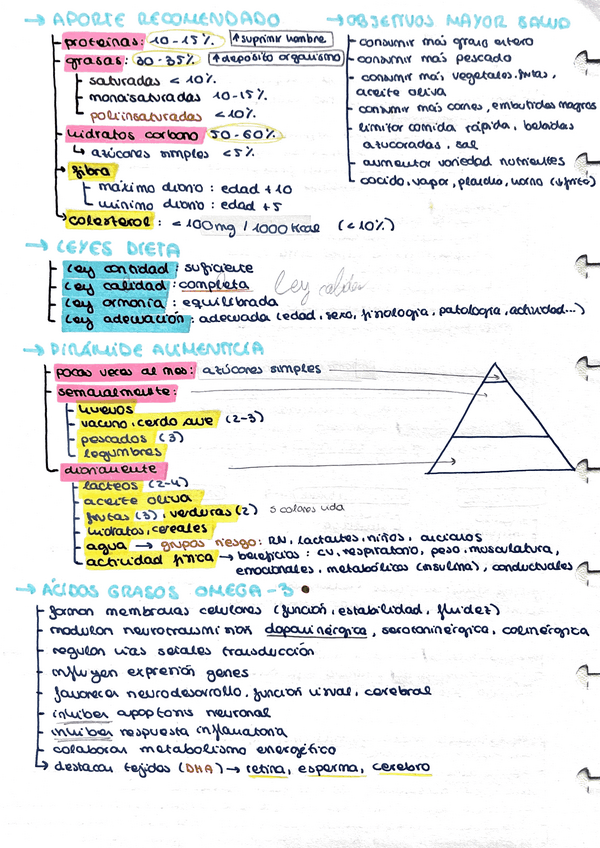 → APORTE RECOMENDADO
proteínas: 10-15%. ↑suprimir hambre
grasas: 30-35%. ↑depósito organismo
saturadas < 10%.
monoisaturadas 10-15%.
poliinsaturadas <10%.
hidratos carbono 50-60%.
↳ azúcares simples <5%.
fibra
máximo diario: edad +10
mínimo diario: edad +5
colesterol: <100mg / 1000 kcal (<10%)
→ OBJETIVOS MAYOR SALUD
consumir más grano entero
consumir más pescado
consumir más vegetales, frutas,
aceite oliva
consumir más carnes, embutidos magros
limitar comida rápida, bebidas
azucaradas, sal
aumentar variedad nutrientes
cocido, vapor, plancha, horno (↓frito)
→ LEYES DIETA
Ley cantidad: suficiente
Ley calidad: completa Ley
Ley armonía: equilibrada
Ley adecuación: adecuada (edad, sexo, finología, patología, actividad...)
→ PIRÁMIDE ALIMENTICIA
pocas veces al mes: azúcares simples
semanalmente:
huevos
vacuno, cerdo, ave (2-3)
pescados (3)
legumbres
diariamente
lácteos (2-4)
aceite oliva
frutas (3), verduras (2) 5 colores vida
hidratos, cereales
agua → grupos riesgo: RN, lactantes, niños, ancianos
actividad física → beneficios: CV, respiratorio, peso, musculatura,
emocionales, metabólicas (insulina), conductuales
→ ÁCIDOS GRASOS OMEGA-3
forman membranas celulares (función, estabilidad, fluidez)
modulan neurotransmisión dopaminérgica, serotoninérgica, colinérgica
regulan vías señales transducción
influyen expresión genes
favorecer neurodesarrollo, función visual, cerebral
inhiben apoptosis neuronal
inhiben respuesta inflamatoria
colaboran metabolismo energético
↳ destacan tejidos (DHA) → retina, esperma, cerebro